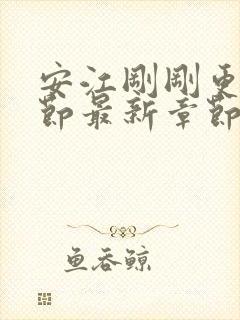 安江刚刚更
节最新章节
鱼吞鲸